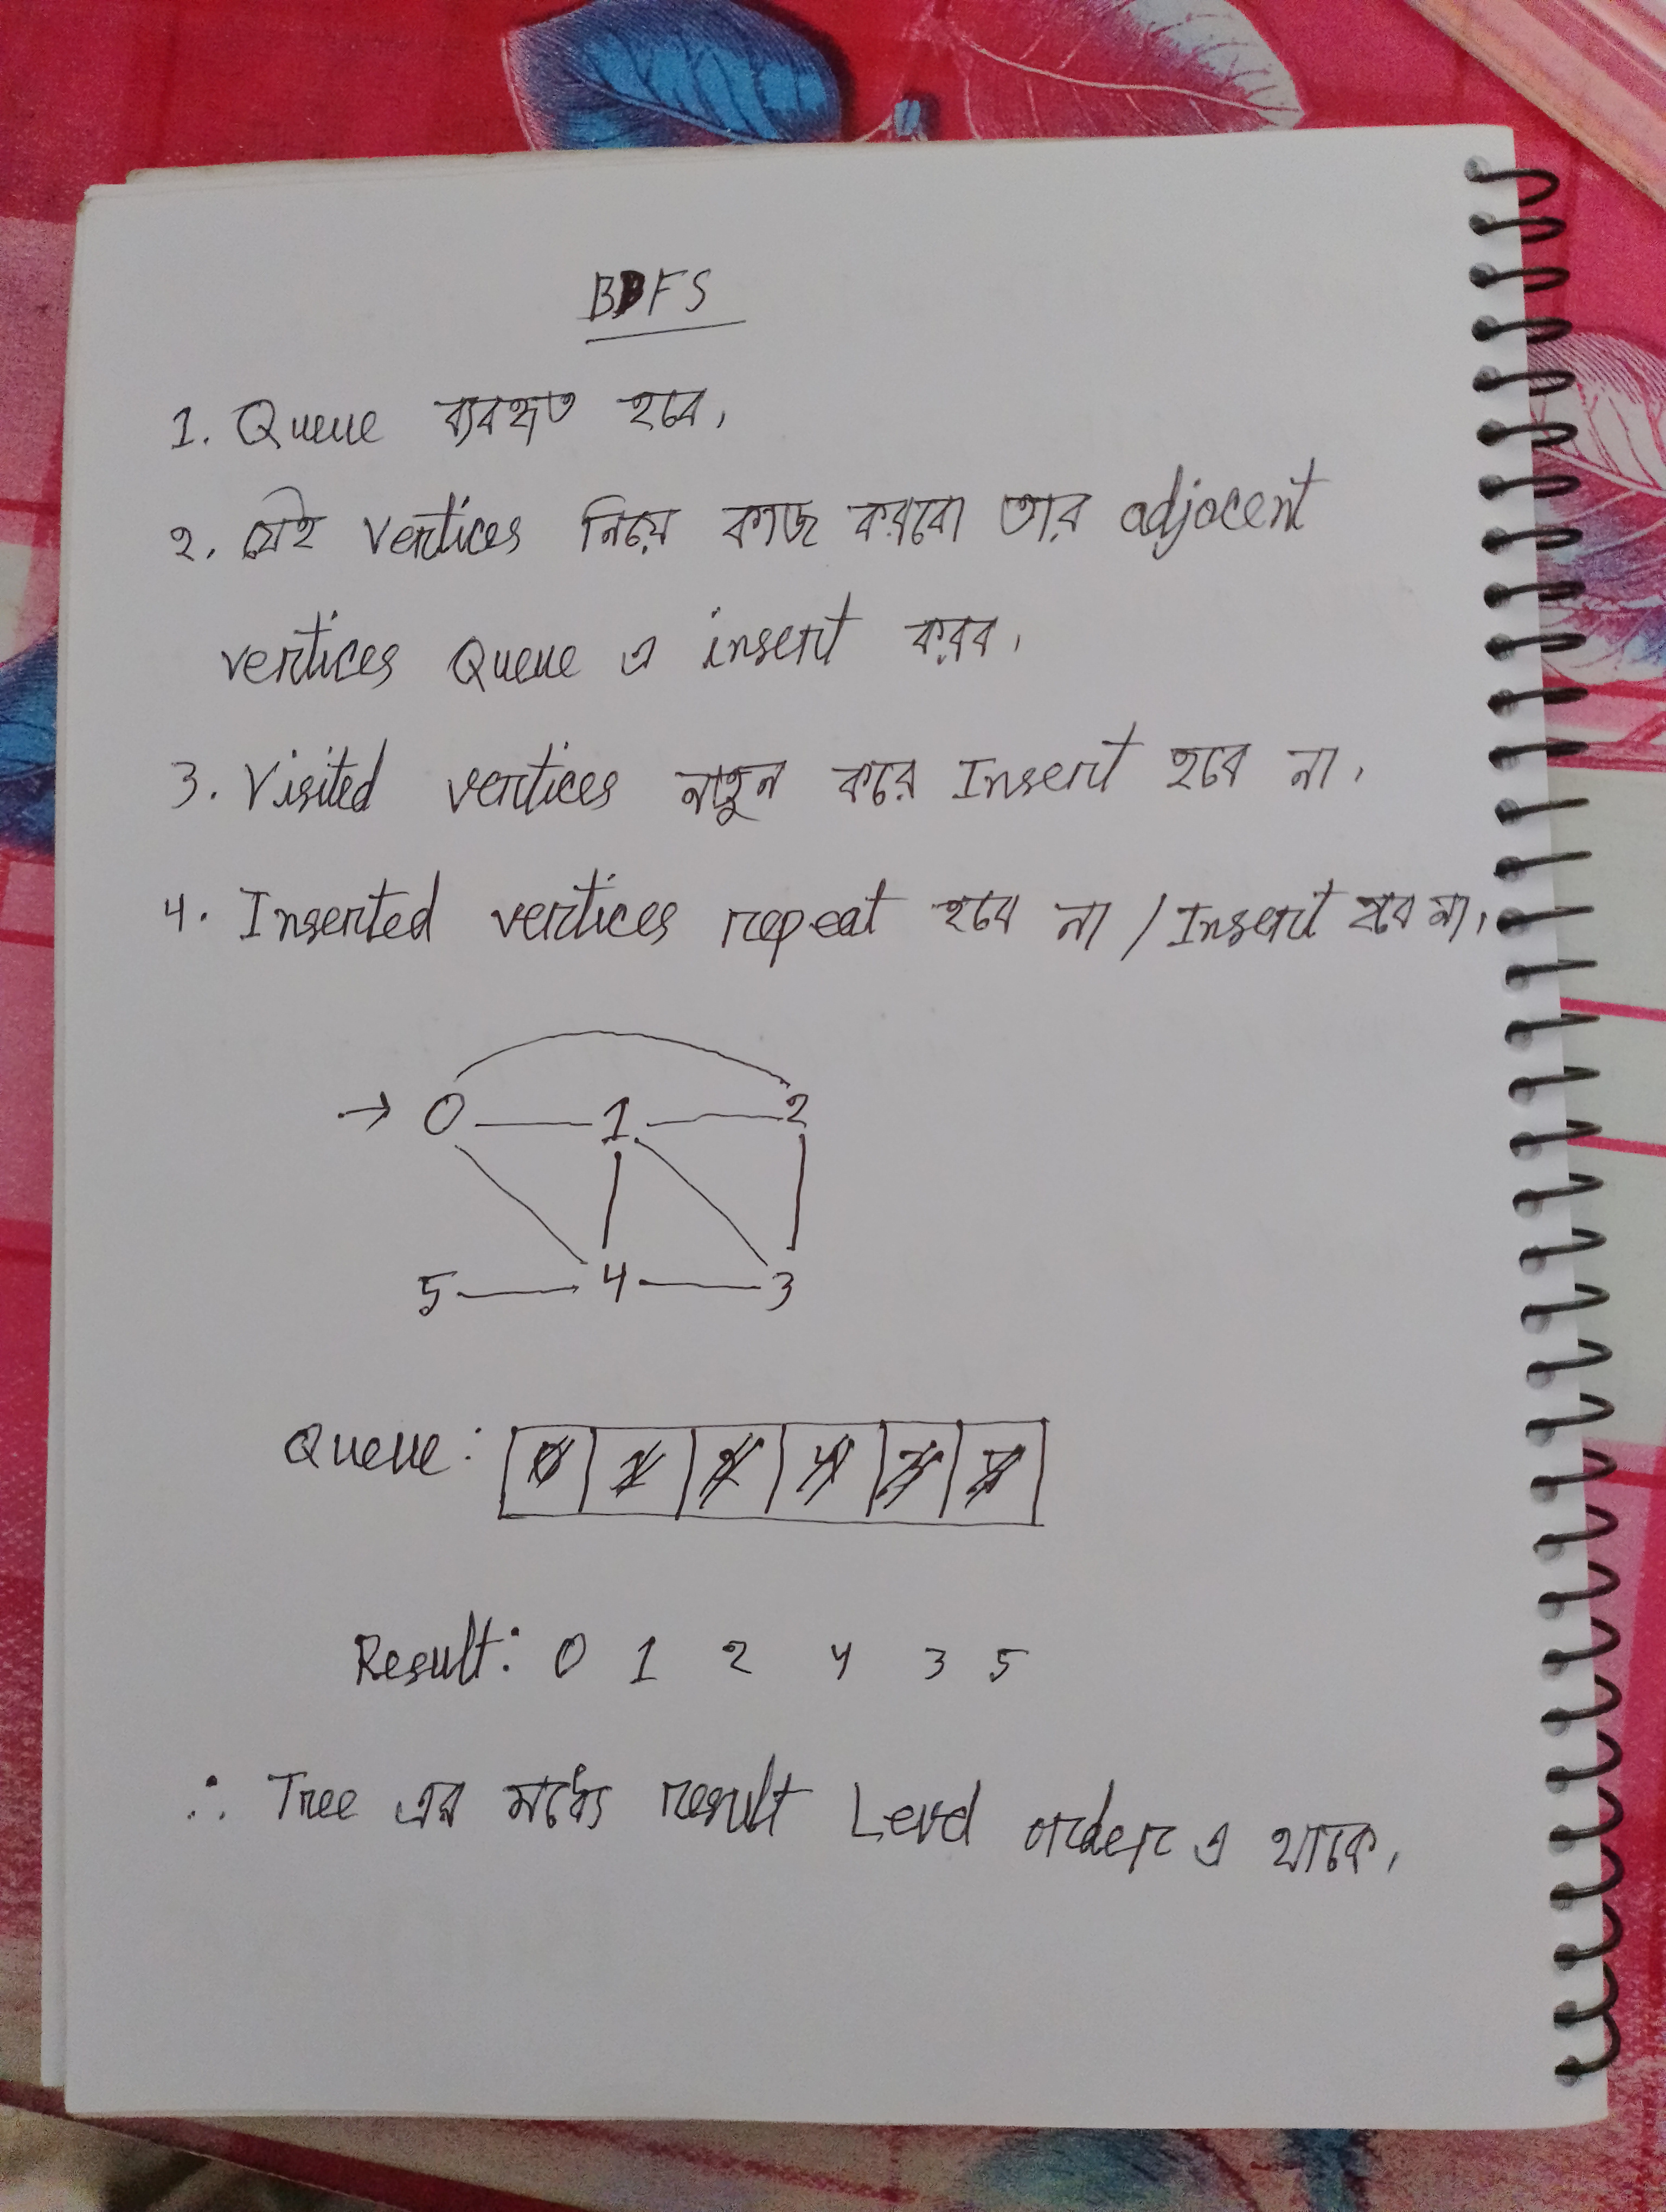 BFS
1. Queue ব্যবহৃত হবে।
২. যেই vertices নিয়ে কাজ করবো তার adjacent
vertices Queue এ insert করব।
3. Visited vertices নতুন করে Insert হবে না।
4. Inserted vertices repeat হবে না / Insert হবে না।
→ 0 1 2
5 4 3
Queue: 0 1 2 4 3 5
Result: 0 1 2 4 3 5
∴ Tree এর মধ্যে result Level order এ থাকে।